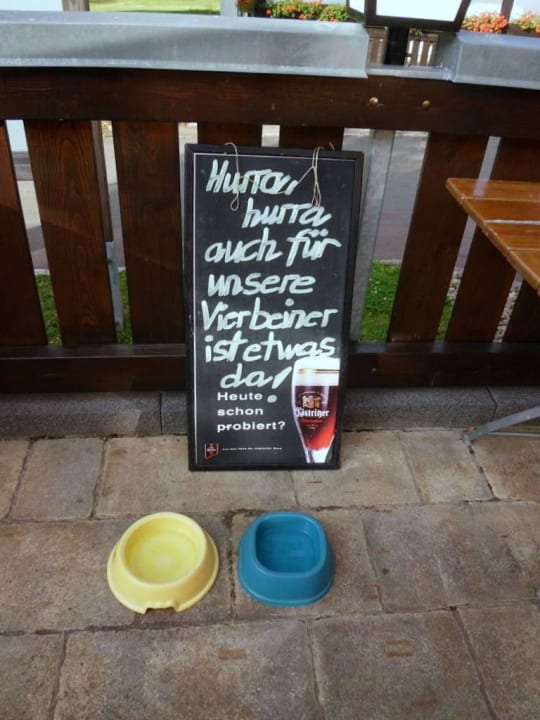 Hurra,
hurra
auch für
unsere
Vierbeiner
ist etwas
da!
Heute
schon
probiert?
Köstritzer